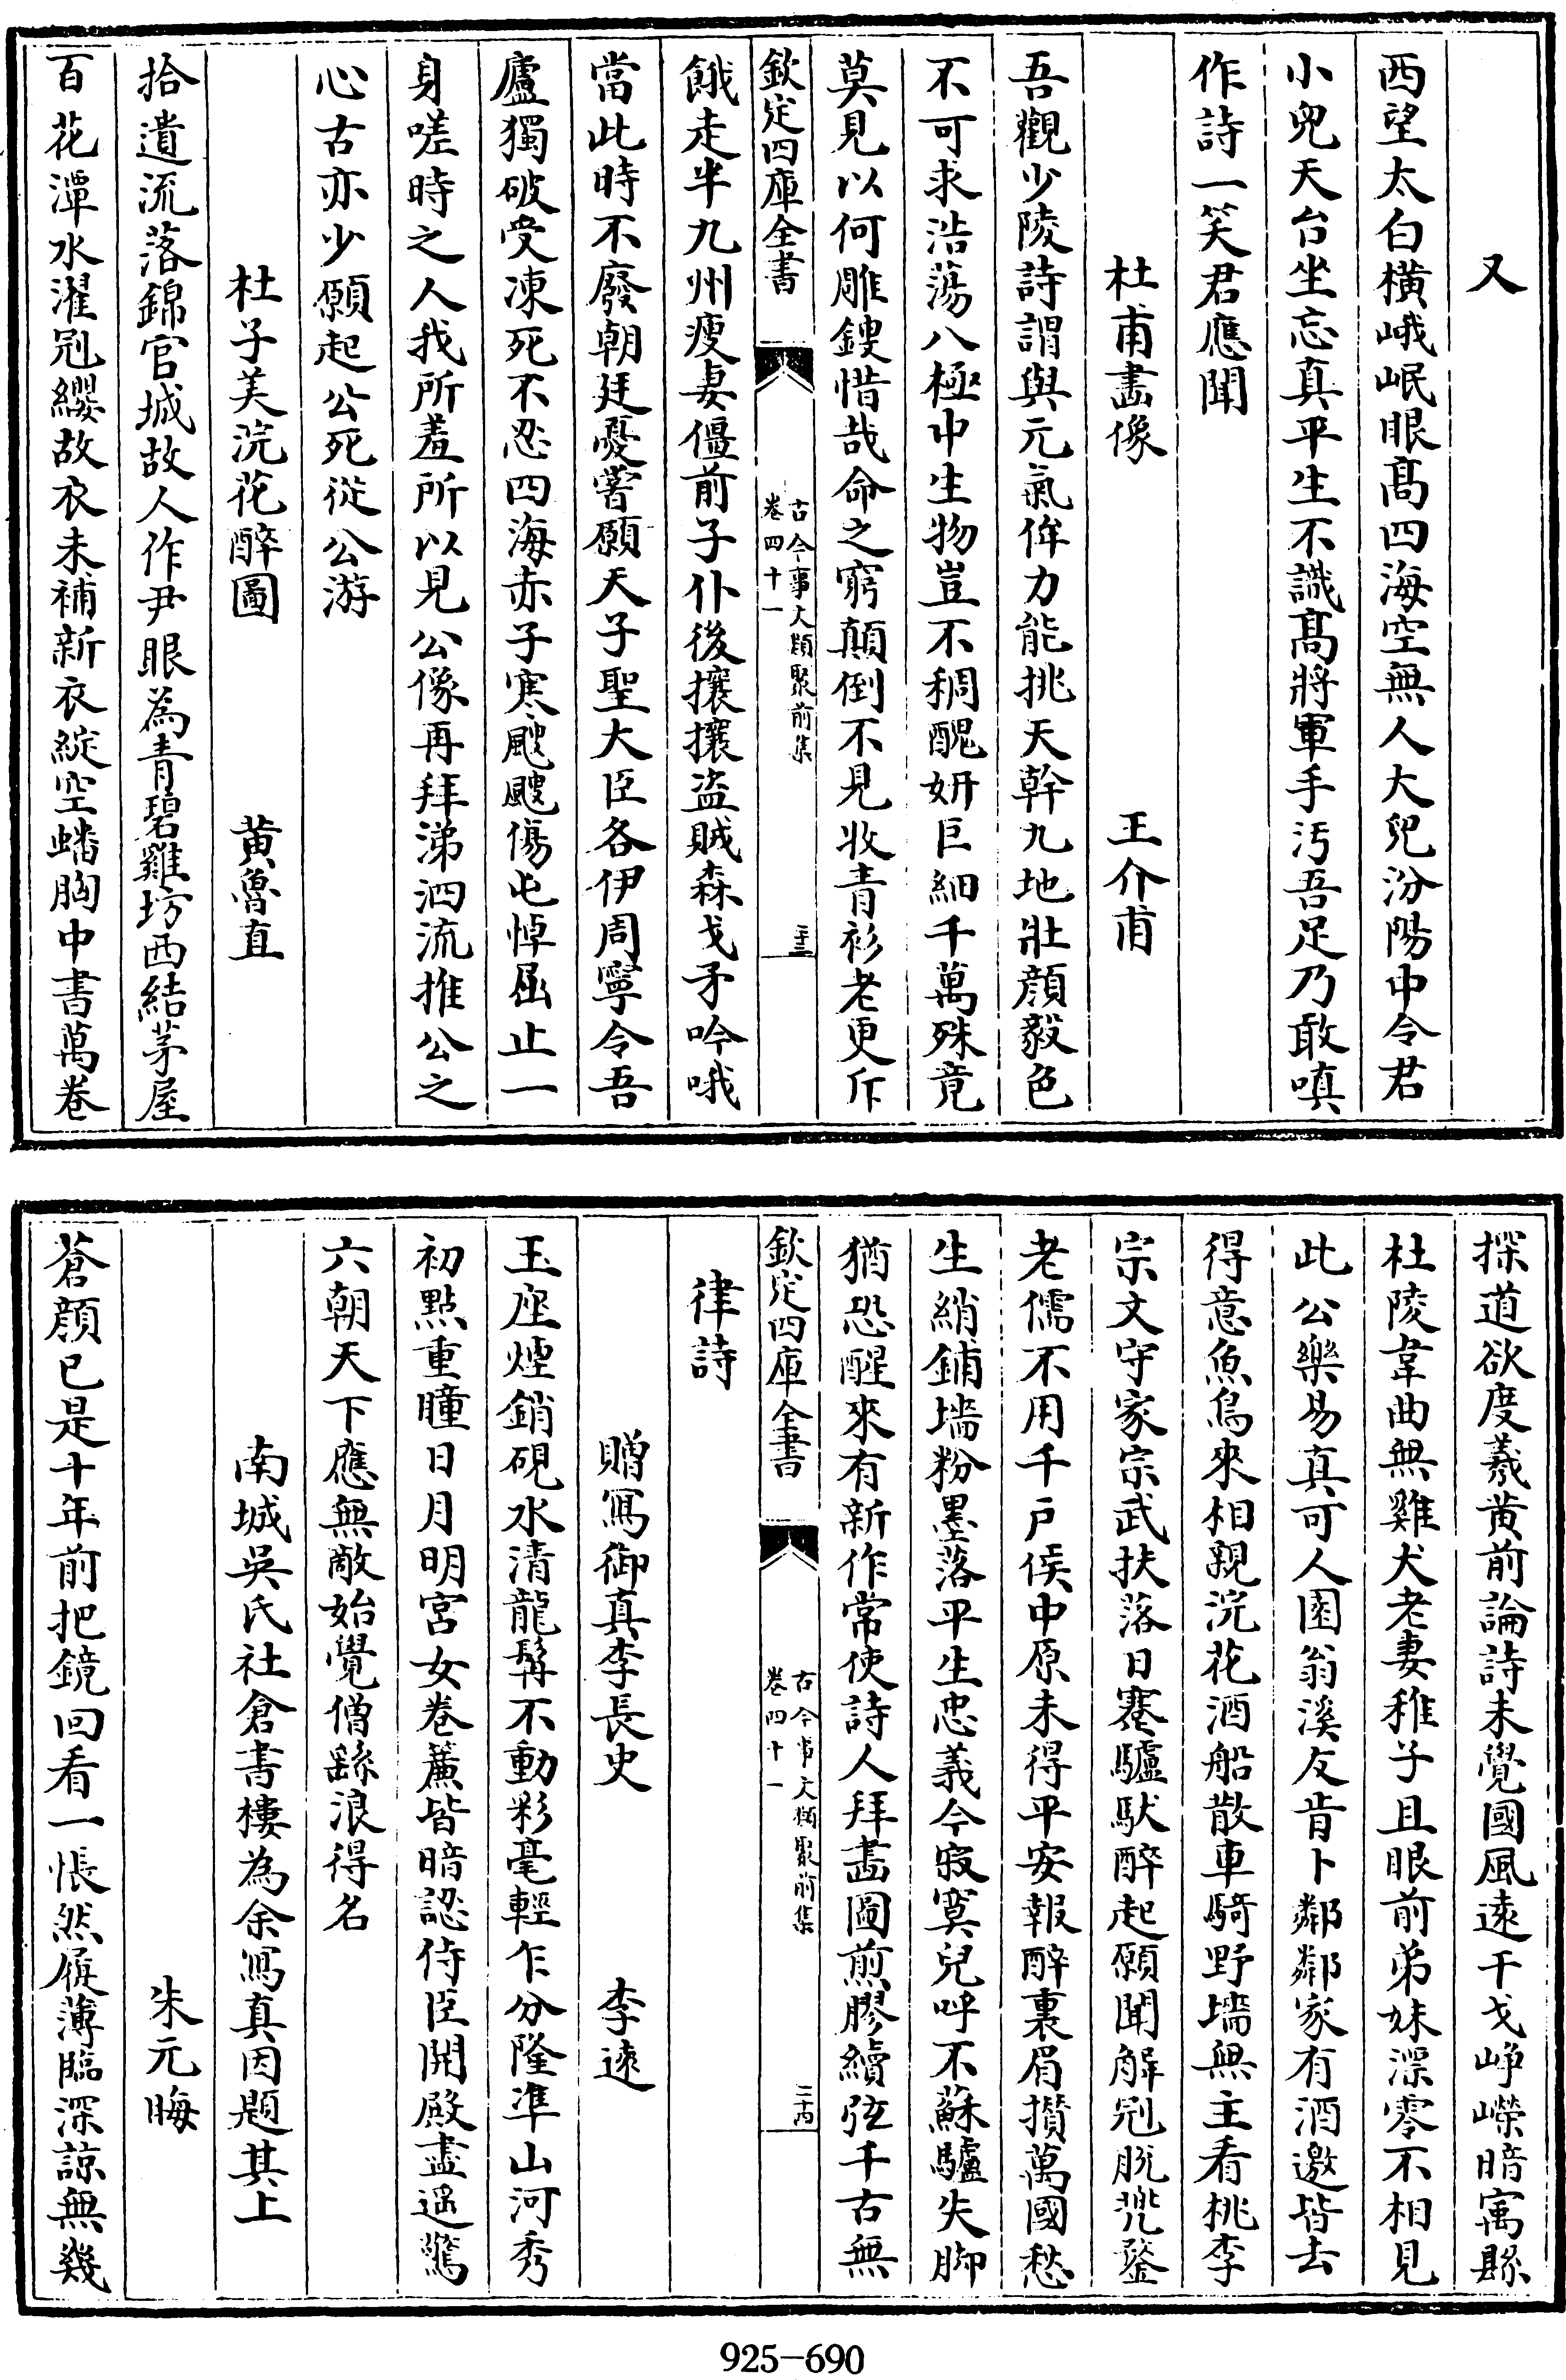 又
西望太白橫峨岷眼髙四海空無人大兒汾陽中令君
小兒天台坐忘真平生不識髙將軍手汚吾足乃敢嗔
作詩一笑君應聞
杜甫畵像　王介甫
吾觀少陵詩謂與元氣侔力能挑天幹九地壯顔毅色
不可求浩蕩八極中生物豈不稠醜妍巨細千萬殊竟
莫見以何雕鎪惜哉命之窮顛倒不見收青衫老更斥
欽定四庫全書　古今事文類聚前集　卷四十一　二十三
餓走半九州瘦妻僵前子仆後攘攘盗賊森戈矛吟哦
當此時不廢朝廷憂嘗願天子聖大臣各伊周寧令吾
廬獨破受凍死不忍四海赤子寒颼颼傷屯悼屈止一
身嗟時之人我所羞所以見公像再拜涕泗流推公之
心古亦少願起公死從公游
杜子美浣花醉圖　黄魯直
拾遺流落錦官城故人作尹眼為青碧雞坊西結茅屋
百花潭水濯冠纓故衣未補新衣綻空蟠胸中書萬卷
探道欲度羲黄前論詩未覺國風逺干戈崢嶸暗寓縣
杜陵韋曲無雞犬老妻稚子且眼前弟妹漂零不相見
此公樂易真可人園翁溪友肯卜鄰鄰家有酒邀皆去
得意魚鳥來相親浣花酒船散車騎野墻無主看桃李
宗文守家宗武扶落日蹇驢馱醉起願聞解冠脱兜鍪
老儒不用千戸侯中原未得平安報醉裏眉攢萬國愁
生綃鋪墻粉墨落平生忠義今寂寞兒呼不蘇驢失脚
猶恐醒來有新作常使詩人拜畵圖煎膠續弦千古無
欽定四庫全書　古今事文類聚前集　卷四十一　二十四
律詩
贈寫御真李長史　李逺
玉座煙銷硯水清龍髯不動彩毫輕乍分隆準山河秀
初點重瞳日月明宮女卷簾皆暗認侍臣開殿盡遥驚
六朝天下應無敵始覺僧繇浪得名
南城吳氏社倉書樓為余寫真因題其上
朱元晦
蒼顔已是十年前把鏡回看一悵然履薄臨深諒無幾
925-690